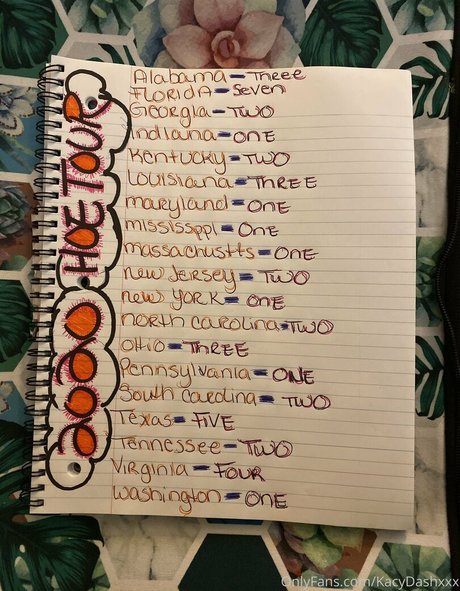 2020 HOE TOUR
Alabama - Three
FLORIDA - Seven
Georgia - TWO
Indiana - ONE
Kentucky - TWO
Louisiana - THREE
maryland - ONE
mississppi - One
massachustts - ONE
new Jersey - TWO
new York - ONE
north carolina - TWO
ohio - THREE
Pennsylvania - ONE
South Carolina - TWO
Texas - FIVE
Tennessee - TWO
Virginia - FOUR
washington - ONE
OnlyFans.com/KacyDashxxx